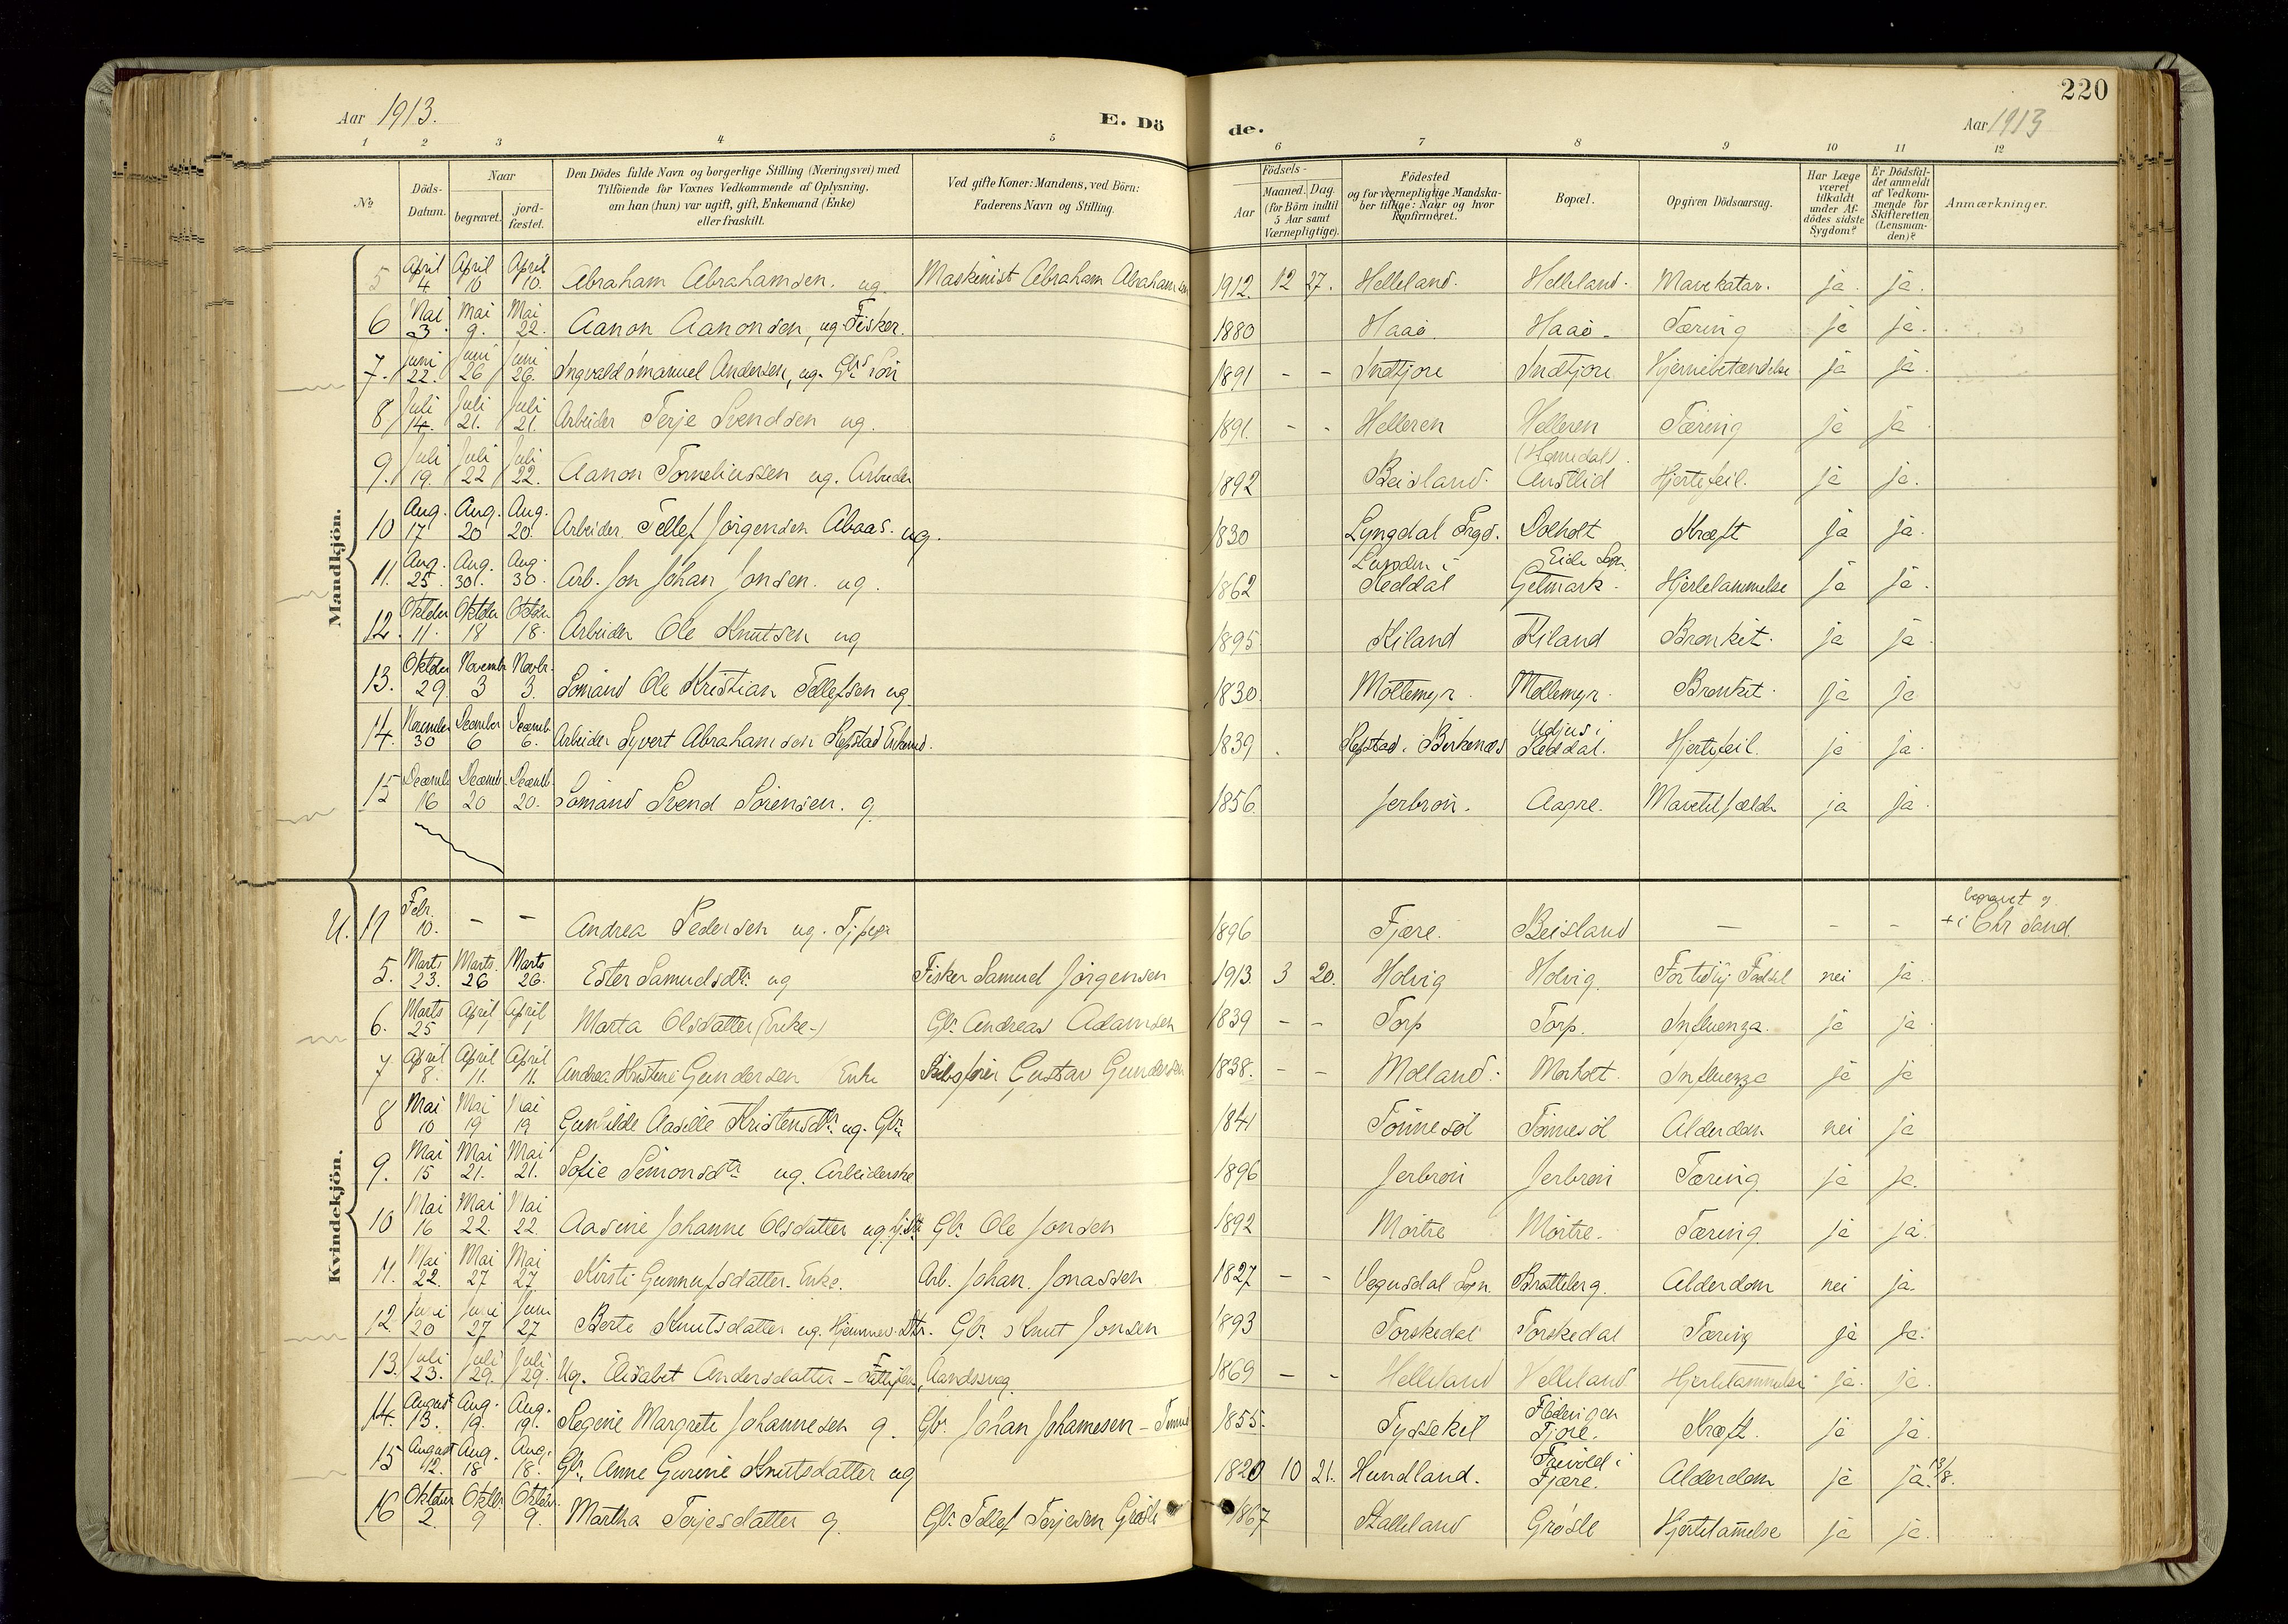 220
Aar 1913. E. Dö de. Aar 1913
1 2 3 4 5 6 7 8 9 10 11 12
No Döds-Datum. Naar begravet. jord-fæstet. Den Dödes fulde Navn og borgerlige Stilling (Næringsvei) med Tilföiende for Voxnes Vedkommende af Oplysning, om han (hun) var ugift, gift, Enkemand (Enke) eller fraskilt. Ved gifte Koner: Mandens, ved Börn: Faderens Navn og Stilling. Födsels- Aar Maaned. Dag. (for Börn indtil 5 Aar samt Værnepligtige). Födested og for værnepligtige Mandska-ber tillige: Naar og hvor konfirmeret. Bopæl. Opgiven Dödsaarsag. Har Læge været tilkaldt under Af-dödes sidste Sygdom? Er Dödsfal-det anmeldt af Vedkom-mende for Skifteretten (Lensman-den)? Anmærkninger.
Mandkjön.
5 April 4 April 10 April 10. Abraham Abrahamsen. ug. Maskinist Abraham Abrahamsen 1912. 12 27. Helleland. Helleland. Mavekatar. ja ja.
6 Mai 3. Mai 9. Mai 22. Aanon Aanonsen, ug. Fisker. 1880 Haaö. Haaö. Tæring ja ja.
7. Juni 22. Juni 26 Juni 26. Ingvald Emanuel Andersen, ug. Gbrs Sön 1891 - - Indtjore Indtjore Hjernebetændelse ja ja.
8 Juli 14. Juli 21. Juli 21. Arbeider Terje Svendsen ug. 1891. - - Helleren Helleren Tæring ja ja
9. Juli 19. Juli 22 Juli 22. Aanon Torneliussen ug. Arbeider 1892 Beisland. (Homdal). Austlid Hjertefeil. ja ja.
10 Aug. 17 Aug. 20 Aug. 20. Arbeider Tellef Jörgensen Abaas. ug. 1830 Lyngdal Prgd. Dolholt Kræft ja ja.
11. Aug. 25. Aug. 30. Aug. 30. Arb. Jon Johan Jonsen. ug. 1862 Lunden i Reddal Eide Sogn. Getmark. Hjertelammelse ja ja.
12. Oktober 11. Oktober 18 Oktober 18. Arbeider Ole Knutsen ug 1895. Kiland Kiland Bronkit. ja ja
13. Oktober 29. November 3 Novbr. 3. Sömand Ole Kristian Tellefsen ug. 1830. Möllemyr. Möllemyr. Bronkit. ja ja
14. November 30 December 6 Decemb. 6. Arbeider Syvert Abrahamsen Refstad Enkemd. 1839. Refstad i Birkenæs Udjus i Reddal. Hjertefeil. ja ja.
15 December 16 Decemb. 20 Decemb. 20. Sömand Svend Sörensen. g. 1856. Jerbrön. Aagre. ja ja.
Kvindekjön.
U. 17 Febr. 10. - - Andrea Pedersen ug. 1896 Fjære. Beisland - - - begravet og + i Chr sand.
5. Marts 23. Marts. 26 Marts 26. Ester Samuelsdtr. ug Fisker Samuel Jörgensen 1913. 3 20. Holvig Holvig. Fortidlig Födsel nei ja.
6. Marts 25 April 1 April 1 Marta Olsdatter (Enke) Gbr. Andreas Adamsen 1839 - - Torp Torp. Influenza. ja ja
7 April 8. April 11. April 11. Andrea Kristene Gundersen Enke Skibsförer Gustav Gundersen 1838. - - Molland. Morholt. Influenza ja ja
8 Mai 10 Mai 19 Mai 19 Gunhilde Aasille Kristensdtr. ug. Gbr. 1841 Tönnesöl Tönnesöl Alderdom nei ja
9. Mai 15 Mai 21. Mai 21. Sofie Simonsdtr ug. Arbeiderske 1896 Jerbrön Jerbrön Tæring. ja ja.
10 Mai 16 Mai 22. Mai 22. Aasine Johanne Olsdatter ug. Gbr. Ole Jonsen 1892 Mörtre Mörtre. Tæring. ja ja.
11. Mai 22. Mai 27 Mai 27 Kirsti Gunnufsdatter. Enke. Arb. Johan. Jonassen 1827 - - Vegusdal Sogn. Bratteberg. Alderdom nei ja.
12. Juni 20 Juni 27 Juni 27 Berte Knutsdatter ug. Hjemmev. Dtr. Gbr. Knut Jonsen 1893 Torskedal Torskedal Tæring ja ja.
13. Juli 23. Juli 29. Juli 29. Ug. Elisabet Andersdatter - Fattiglem, Aandssvag 1869 - - Helleland Helleland Hjertelammelse ja. ja.
14. August 13. Aug. 19. Aug. 19. Regine Margrete Johannesen g. Gbr. Johan Johannesen - 1855. Tyssekil Fjöre. Kræft. ja ja.
15 August 12. Aug. 18 Aug. 18. Gbr. Anne Gurine Knutsdatter ug 1820 10 21. Hundland. Frivold i Fjære. Alderdom ja ja. 13/8.
16 Oktober 2. Oktbr. 9 Oktbr. 9. Martha Terjesdatter g. Gbr. Tellef Terjesen Grösle 1867 Stalleland Grösle Hjertelammelse ja ja.